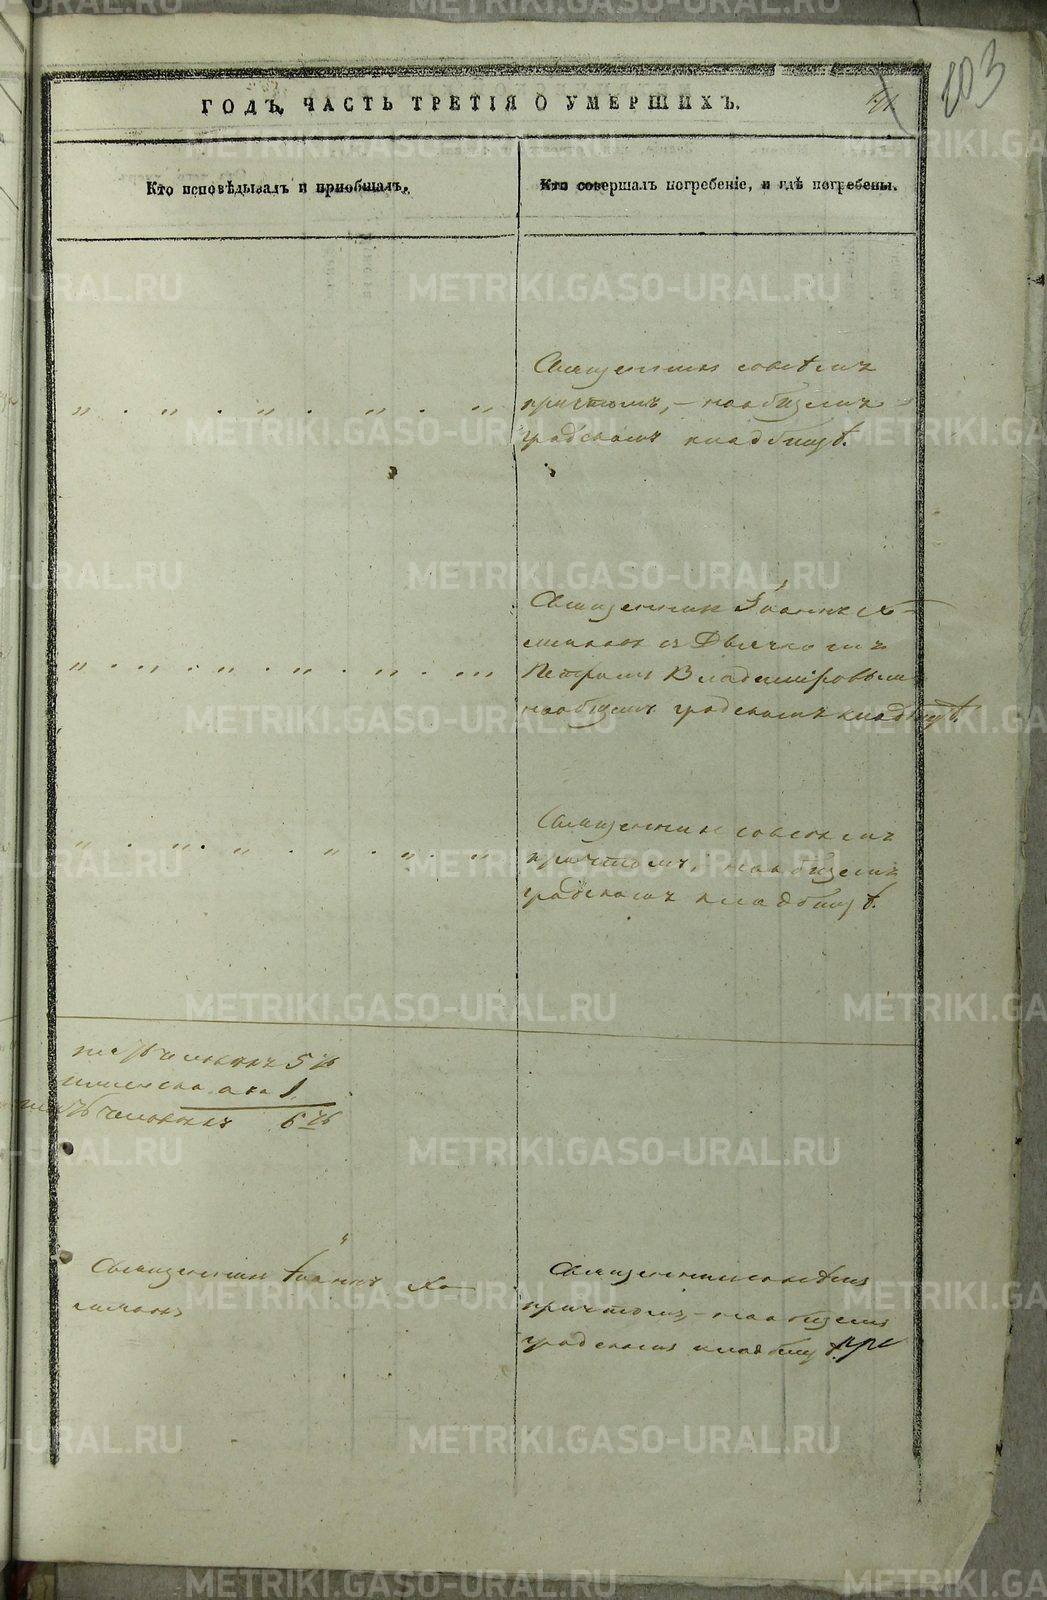 103
ГОДЪ, ЧАСТЬ ТРЕТІЯ О УМЕРШИХЪ.
Кто исповѣдывалъ и пріобщалъ.
Кто совершалъ погребеніе, и гдѣ погребены.
Священникъ совсѣмъ
причтомъ, – наобщемъ
градскомъ кладбищѣ.
Священникъ Іоаннъ
съ Дьячкомъ
Петромъ Владиміровымъ
наобщемъ градскомъ кладбищѣ.
Священникъ совсѣмъ
причтомъ, наобщемъ
градскомъ кладбищѣ.
5
1
человѣкъ 6
Священникъ Іоаннъ
Священникъ совсѣмъ
причтомъ, – наобщемъ
градскомъ кладбищѣ.
METRIKI.GASO-URAL.RU